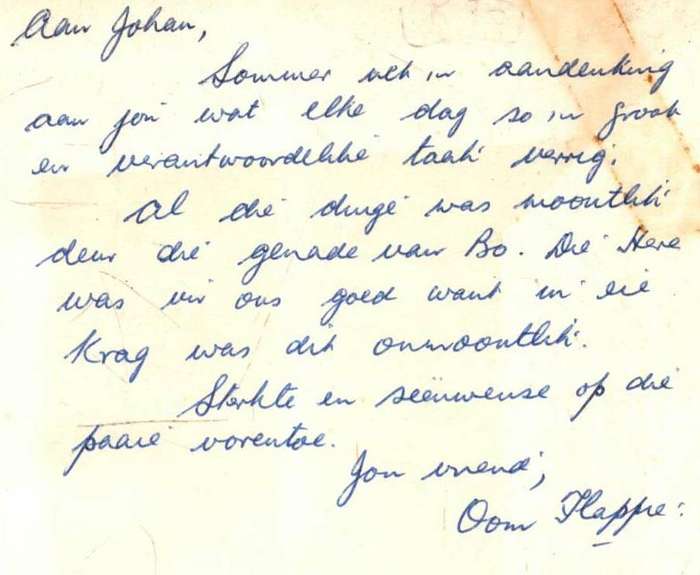 Aan Johan,
Sommer net 'n aandenking
aan jou wat elke dag so 'n groot
en verantwoordelike taak verrig.
Al die dinge was moontlik
deur die genade van Bo. Die Here
was vir ons goed want in eie
Krag was dit onmoontlik.
Sterkte en seënwense op die
paaie vorentoe.
Jou vriend,
Oom Flappie.